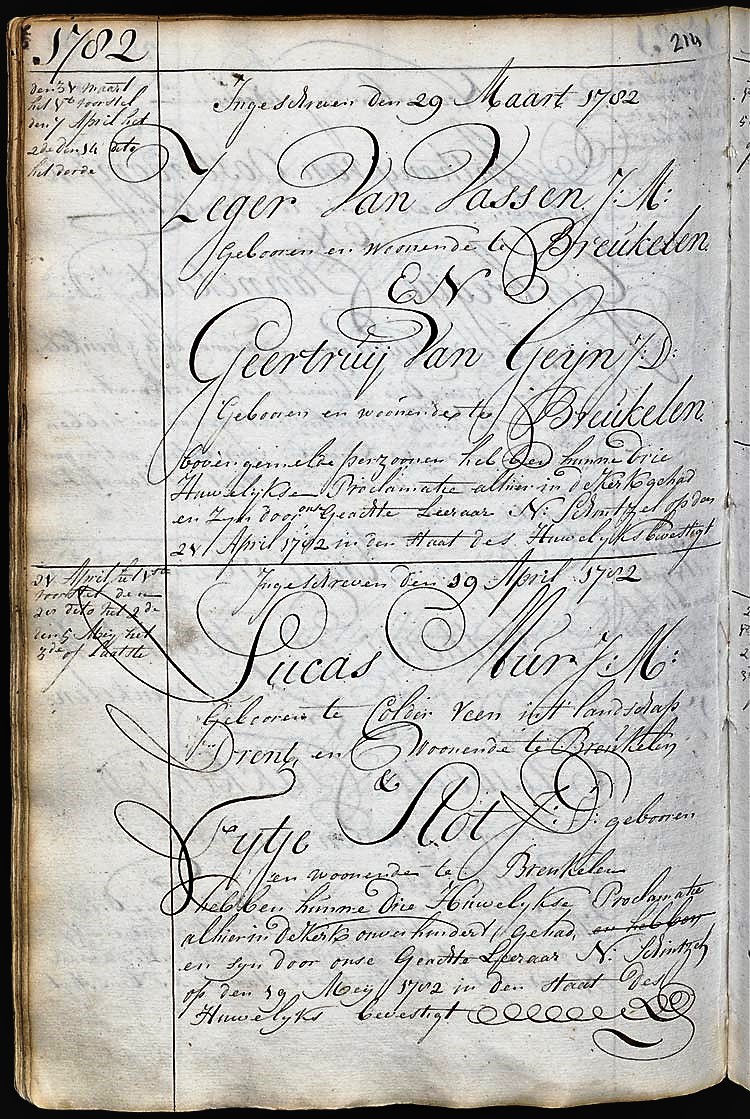 1782
214
den 31 maart
het 1ste voorstel
den 7 April het
2de den 14 dito
het derde
Ingeschreven den 29 Maart 1782
Zeger Van Vassen J: M:
Gebooren en woonende te Breukelen
EN
Geertruij Van Geijn J: D:
Gebooren en woonende te Breukelen
bovengemelde perzoonen hebben hunne drie
Huwelykse Proclamatie alhier in de Kerk gehad
en Zyn door onze Geachte Leeraar N: Schintzel op den
21 April 1782 in den Staat des Huwelyks bevestigt
21 April het 1ste
voorstel den
28 dito het 2de
den 5 Meij het
3de of laatste
Ingeschreven den 19 April 1782
Lucas Mur J: M:
Gebooren te Colder Veen int landschap
Drent, en Woonende te Breukelen
&
Fytje Slot J: D: gebooren
en woonende te Breukelen
hebben hunne drie Huwelykse Proclamatie
alhier in de Kerk onverhindert gehad, en hebben
en syn door onse Geachte Leeraar N: Schintzel
op den 19 Meij 1782 in den staat des
Huwelyks bevestigt